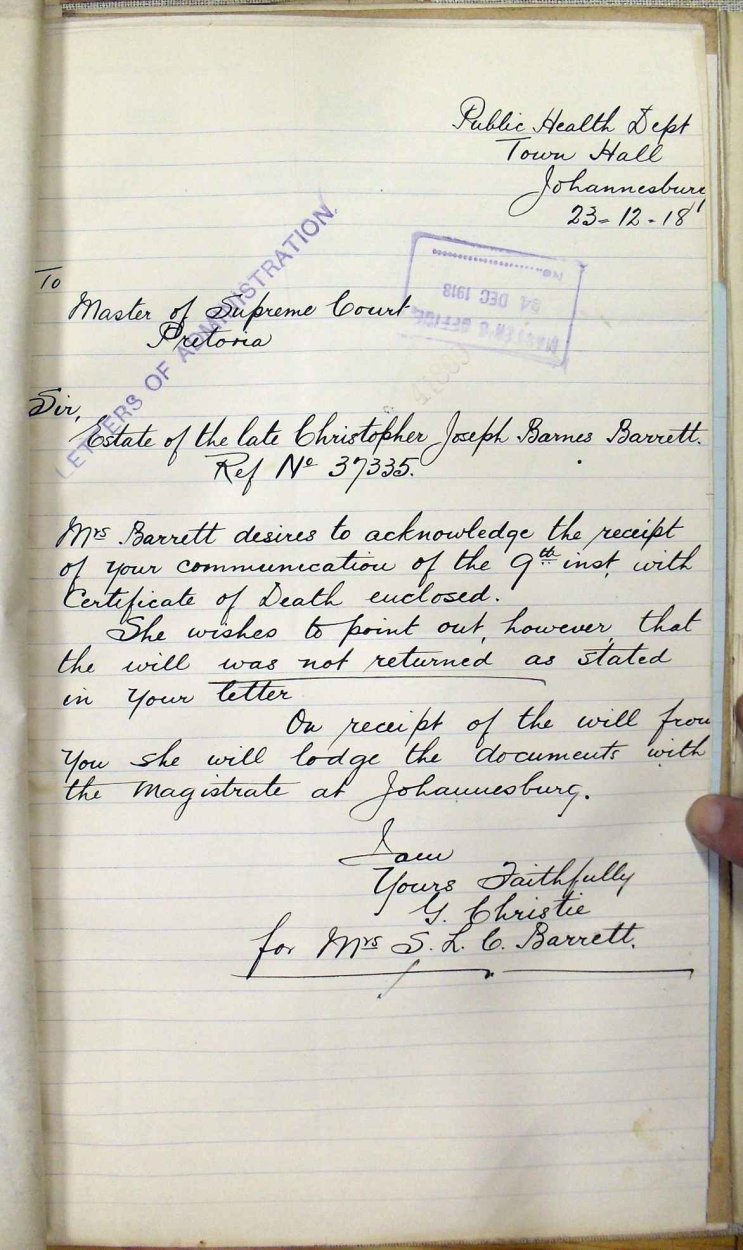 Public Health Dept
Town Hall
Johannesburg
23-12-18
LETTERS OF ADMINISTRATION.
MASTER'S OFFICE
24 DEC 1918
No
To
Master of Supreme Court
Pretoria
Sir,
Estate of the late Christopher Joseph Barnes Barrett.
Ref No 37335.
Mrs Barrett desires to acknowledge the receipt
of your communication of the 9th inst, with
Certificate of Death enclosed.
She wishes to point out, however, that
the will was not returned as stated
in your letter
On receipt of the will from
you she will lodge the documents with
the Magistrate at Johannesburg.
I am
Yours Faithfully
G. Christie
for Mrs S. L. C. Barrett.